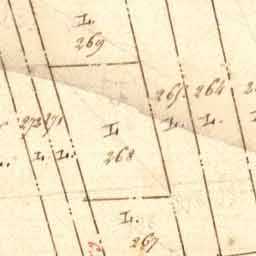 L.
269
265 264
L. L.
272 271
L
268
L. L. L.
L.
267